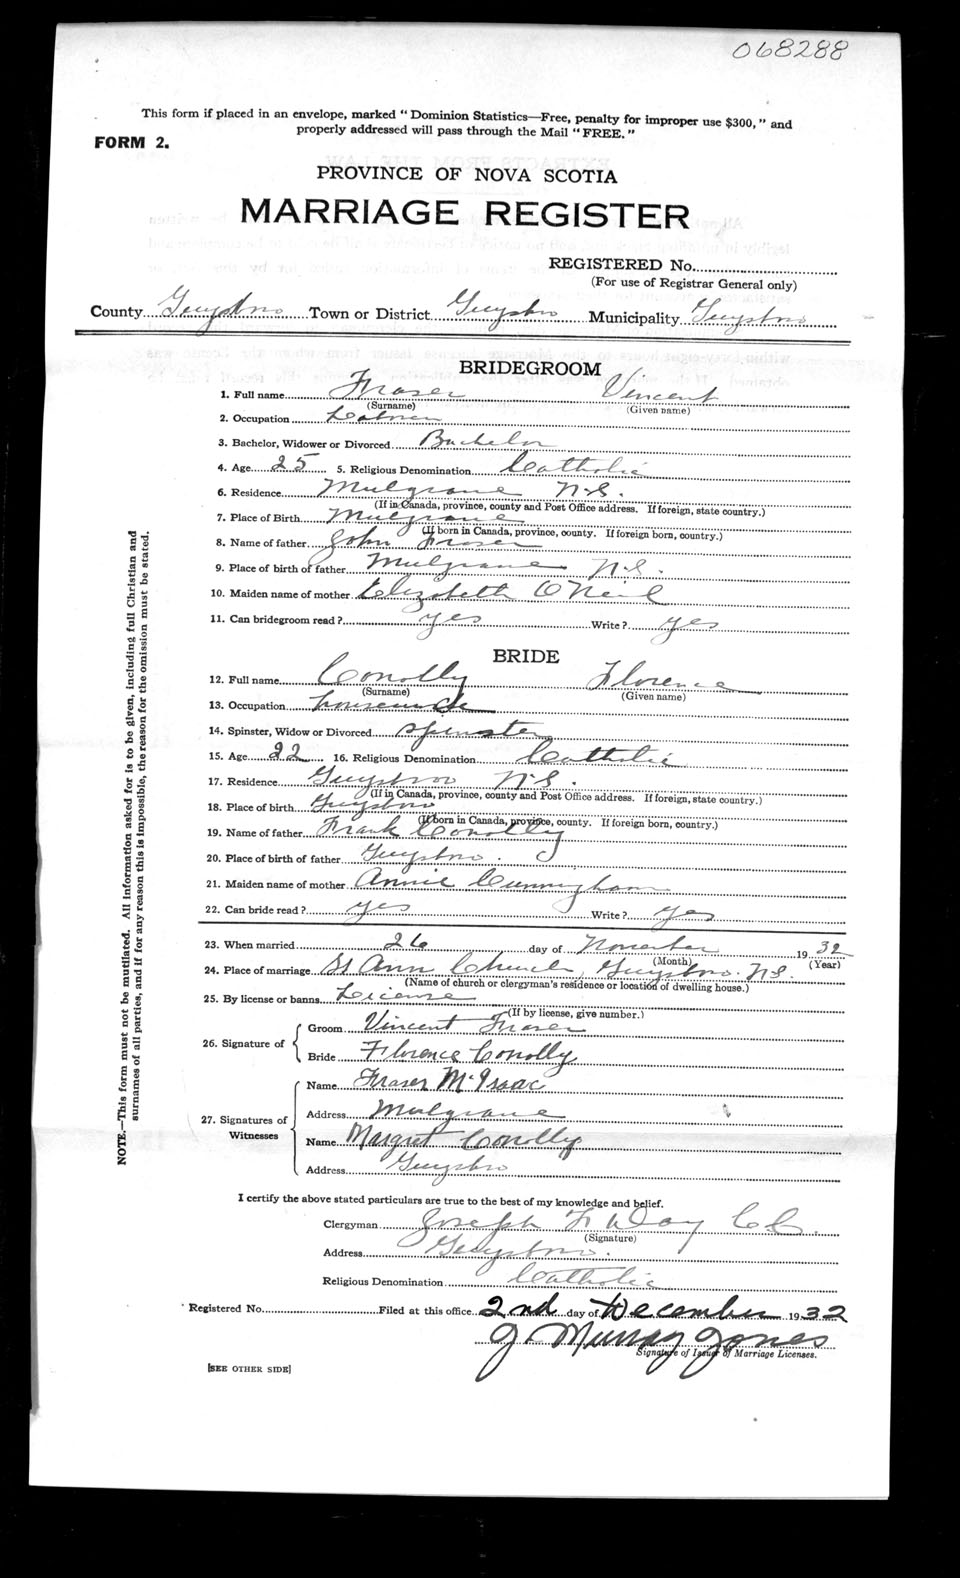 068288
This form if placed in an envelope, marked "Dominion Statistics—Free, penalty for improper use $300," and
properly addressed will pass through the Mail "FREE."
FORM 2.
PROVINCE OF NOVA SCOTIA
MARRIAGE REGISTER
REGISTERED No.
(For use of Registrar General only)
County Guysboro Town or District Guysboro Municipality Guysboro
BRIDEGROOM
1. Full name Fraser Vincent
(Surname) (Given name)
2. Occupation
3. Bachelor, Widower or Divorced Bachelor
4. Age 25 5. Religious Denomination Catholic
6. Residence Mulgrave N.S.
(If in Canada, province, county and Post Office address. If foreign, state country.)
7. Place of Birth Mulgrave
(If born in Canada, province, county. If foreign born, country.)
8. Name of father John Fraser
9. Place of birth of father Mulgrave N.S.
10. Maiden name of mother Elizabeth O'Neil
11. Can bridegroom read? yes Write? yes
BRIDE
12. Full name Conolly Florence
(Surname) (Given name)
13. Occupation
14. Spinster, Widow or Divorced Spinster
15. Age 22 16. Religious Denomination Catholic
17. Residence Guysboro N.S.
(If in Canada, province, county and Post Office address. If foreign, state country.)
18. Place of birth Guysboro
(If born in Canada, province, county. If foreign born, country.)
19. Name of father Frank Conolly
20. Place of birth of father Guysboro.
21. Maiden name of mother Annie Cunningham
22. Can bride read? yes Write? yes
23. When married 26 day of November 1932
(Month) (Year)
24. Place of marriage St Ann Church, Guysboro. N.S.
(Name of church or clergyman's residence or location of dwelling house.)
25. By license or banns License
(If by license, give number.)
26. Signature of
Groom Vincent Fraser
Bride Florence Conolly
27. Signatures of
Witnesses
Name Fraser McIsaac
Address Mulgrave
Name Margret Conolly
Address Guysboro
I certify the above stated particulars are true to the best of my knowledge and belief.
Clergyman Joseph F Day C.C.
(Signature)
Address Guysboro.
Religious Denomination Catholic
Registered No. Filed at this office 2nd day of December 1932
J Murray Jones
Signature of Issuer of Marriage Licenses.
[SEE OTHER SIDE]
NOTE.—This form must not be mutilated. All information asked for is to be given, including full Christian and
surnames of all parties, and if for any reason this is impossible, the reason for the omission must be stated.